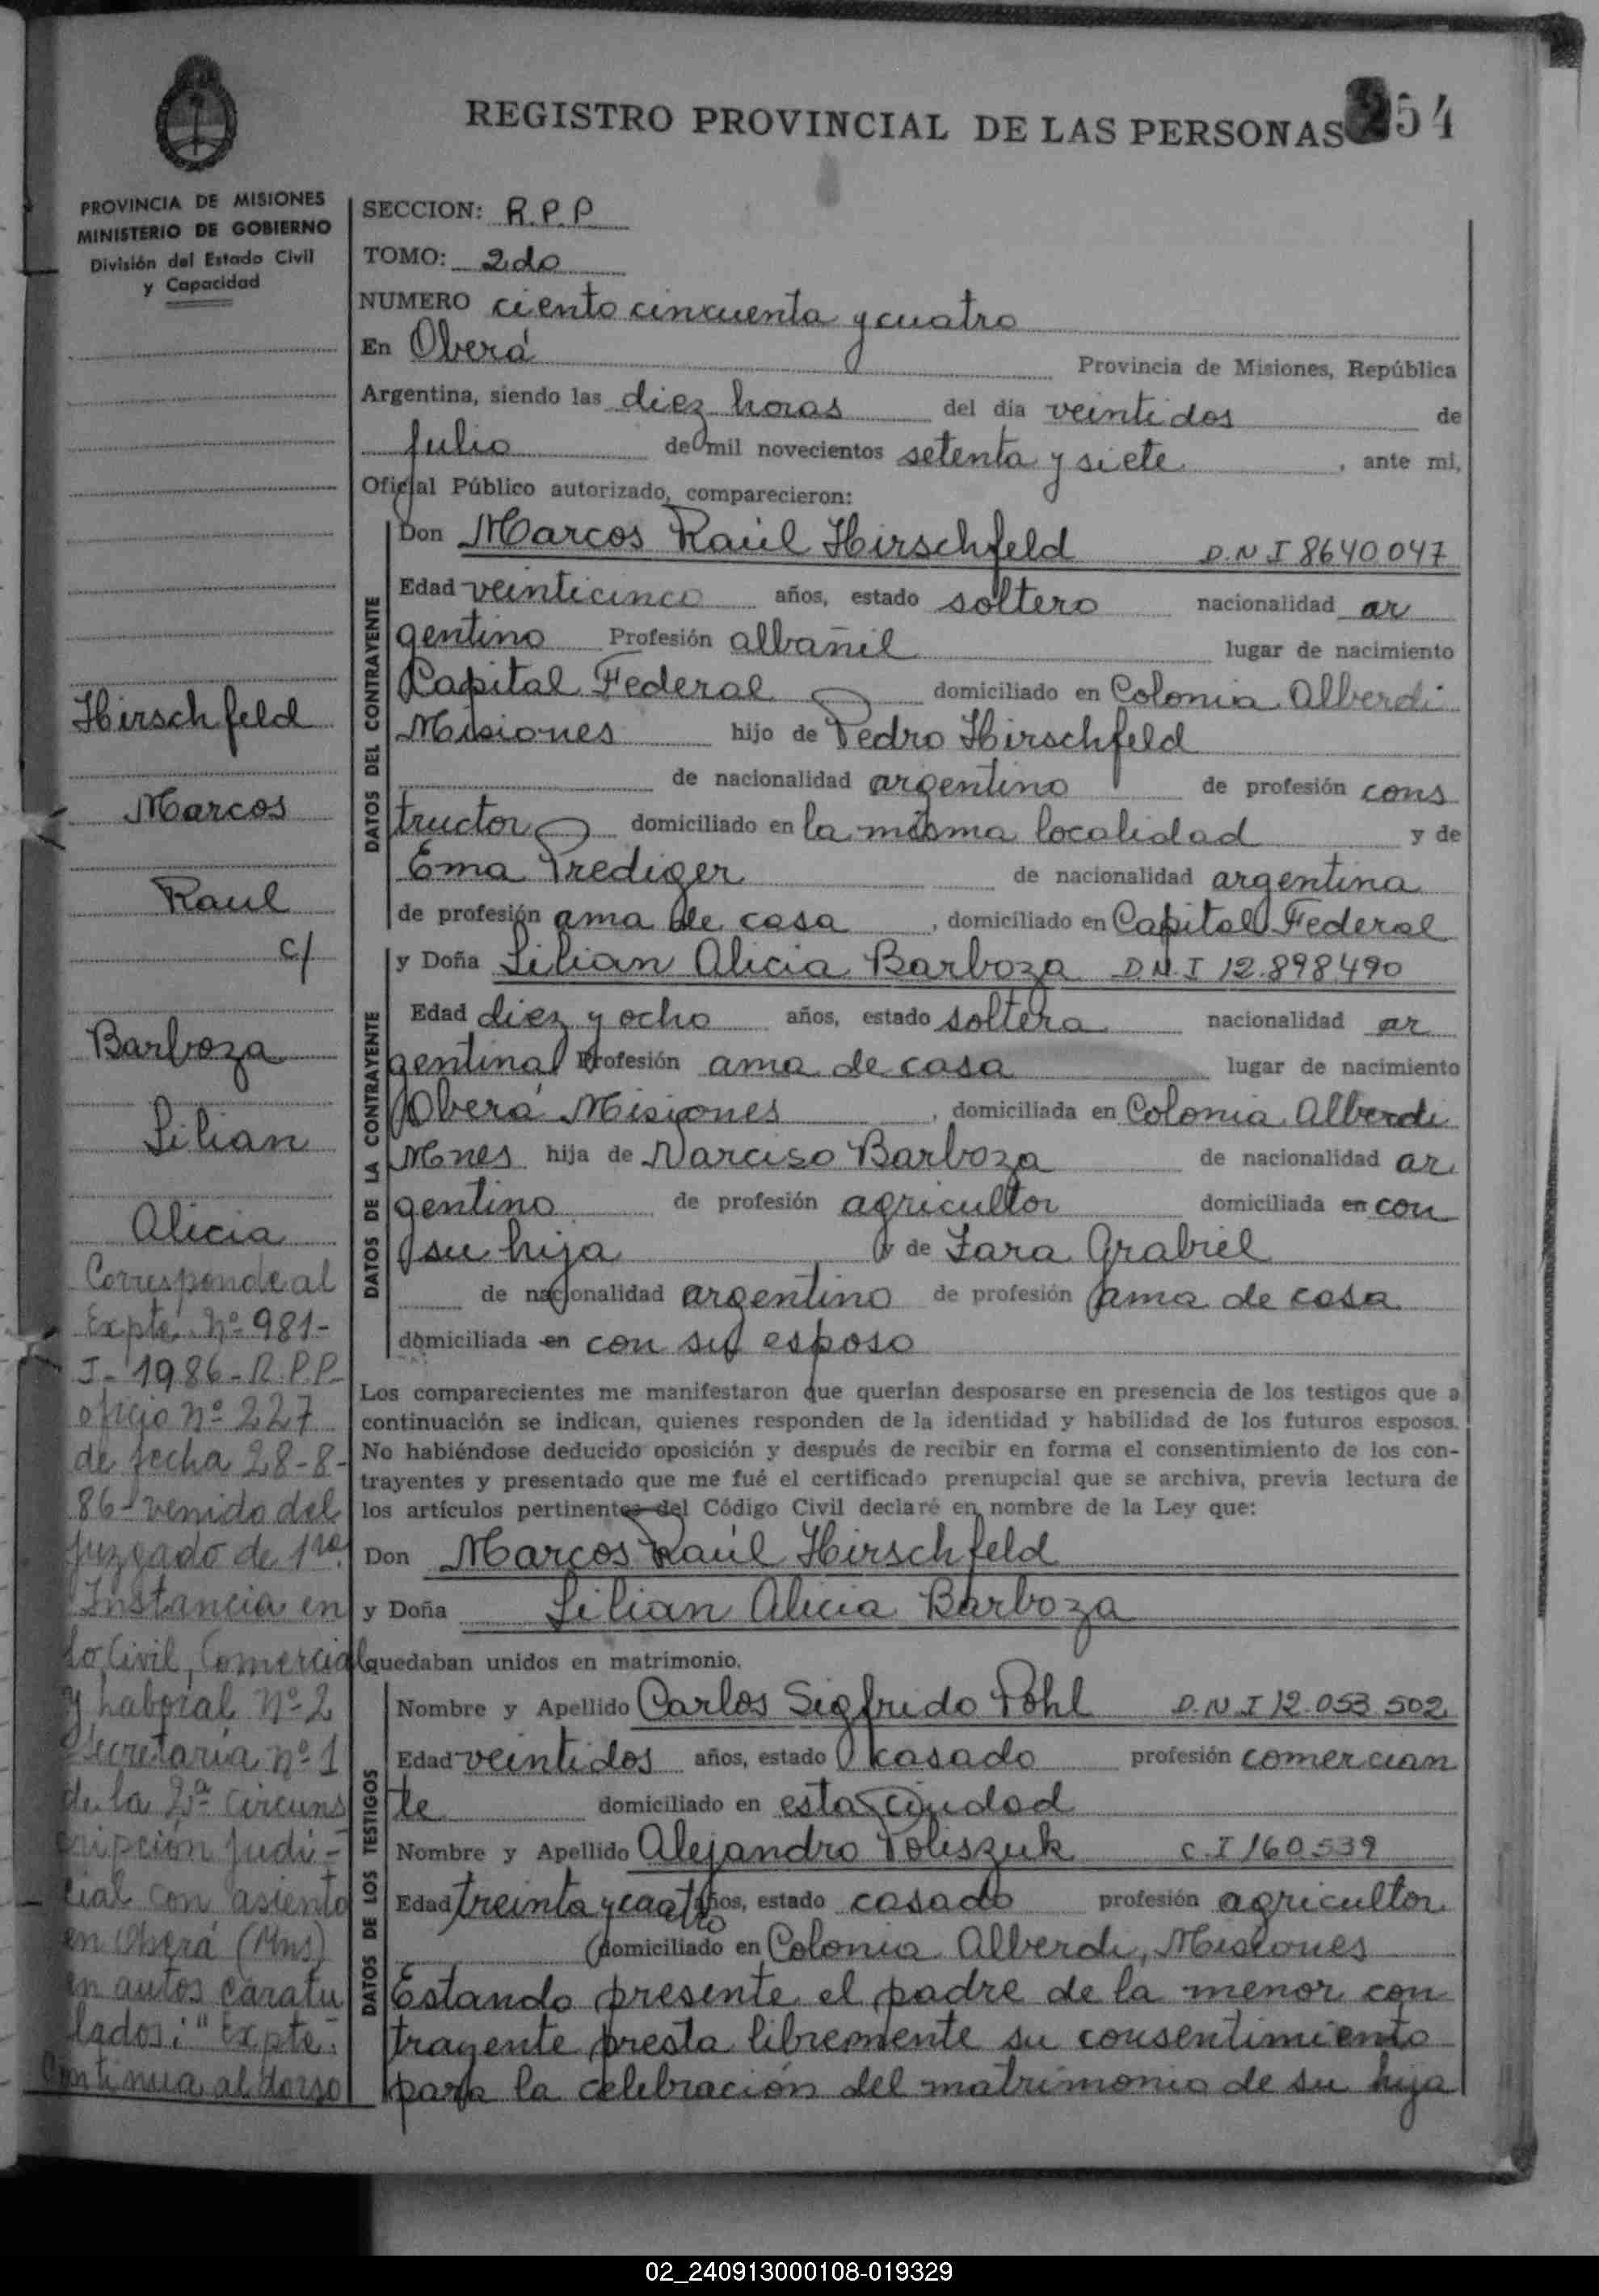 REGISTRO PROVINCIAL DE LAS PERSONAS 254
PROVINCIA DE MISIONES
MINISTERIO DE GOBIERNO
División del Estado Civil
y Capacidad
Hirschfeld
Marcos
Raul
c/
Barboza
Lilian
Alicia
Corresponde al
Expte. Nº 981-
J- 1986- R.P.P-
oficio nº 227
de fecha 28-8-
86- venido del
Juzgado de 1ra.
Instancia en
lo Civil, Comercial
y Laboral Nº 2
Secretaría nº 1
de la 2ª circuns
cripción Judi-
cial con asiento
en Oberá (Mns)
en autos caratu
lados: "Expte.
Continua al dorso
SECCION: R.P.P
TOMO: 2do
NUMERO ciento cincuenta y cuatro
En Oberá Provincia de Misiones, República
Argentina, siendo las diez horas del día veintidos de
Julio de mil novecientos setenta y siete, ante mi,
Oficial Público autorizado, comparecieron:
DATOS DEL CONTRAYENTE
Don Marcos Raúl Hirschfeld D.N.I 8640.047
Edad veinticinco años, estado soltero nacionalidad ar
gentino Profesión albañil lugar de nacimiento
Capital Federal domiciliado en Colonia Alberdi
Misiones hijo de Pedro Hirschfeld
de nacionalidad argentino de profesión cons
tructor domiciliado en la misma localidad y de
Ema Prediger de nacionalidad argentina
de profesión ama de casa, domiciliado en Capital Federal
DATOS DE LA CONTRAYENTE
y Doña Lilian Alicia Barboza D.N.I 12.898.490
Edad diez y ocho años, estado soltera nacionalidad ar
gentina Profesión ama de casa lugar de nacimiento
Oberá Misiones, domiciliada en Colonia Alberdi
Mnes hija de Narciso Barboza de nacionalidad ar
gentino de profesión agricultor domiciliada en con
su hija y de Zara Grabiel
de nacionalidad argentino de profesión ama de casa
domiciliada en con su esposo
Los comparecientes me manifestaron que querían desposarse en presencia de los testigos que a
continuación se indican, quienes responden de la identidad y habilidad de los futuros esposos.
No habiéndose deducido oposición y después de recibir en forma el consentimiento de los con-
trayentes y presentado que me fué el certificado prenupcial que se archiva, previa lectura de
los artículos pertinentes del Código Civil declaré en nombre de la Ley que:
Don Marcos Raúl Hirschfeld
y Doña Lilian Alicia Barboza
quedaban unidos en matrimonio.
DATOS DE LOS TESTIGOS
Nombre y Apellido Carlos Sigfrido Pohl D.N.I 12.053.502
Edad veintidos años, estado casado profesión comercian
te domiciliado en esta Ciudad
Nombre y Apellido Alejandro Poliszuk C.I 160.539
Edad treinta y cuatro años, estado casado profesión agricultor
domiciliado en Colonia Alberdi, Misiones
Estando presente el padre de la menor con
trayente presta libremente su consentimiento
para la celebración del matrimonio de su hija
02_240913000108-019329